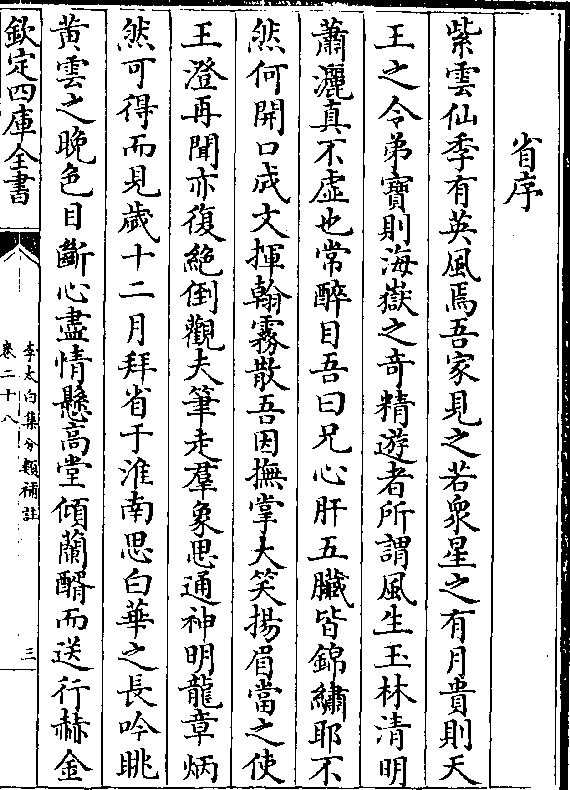 省序
紫雲仙季有英風焉吾家見之若衆星之有月貴則天
王之令弟寶則海嶽之竒精遊者所謂風生玉林清明
蕭灑真不虚也常醉目吾曰兄心肝五臟皆錦繡耶不
然何開口成文揮翰霧散吾因撫掌大笑揚眉當之使
王澄再聞亦復絶倒觀夫筆走羣象思通神明龍章炳
然可得而見歲十二月拜省于淮南思白華之長吟眺
黄雲之晩色目斷心盡情懸高堂傾蘭醑而送行赫金
欽定四庫全書
李太白集分類補註
卷二十八
三